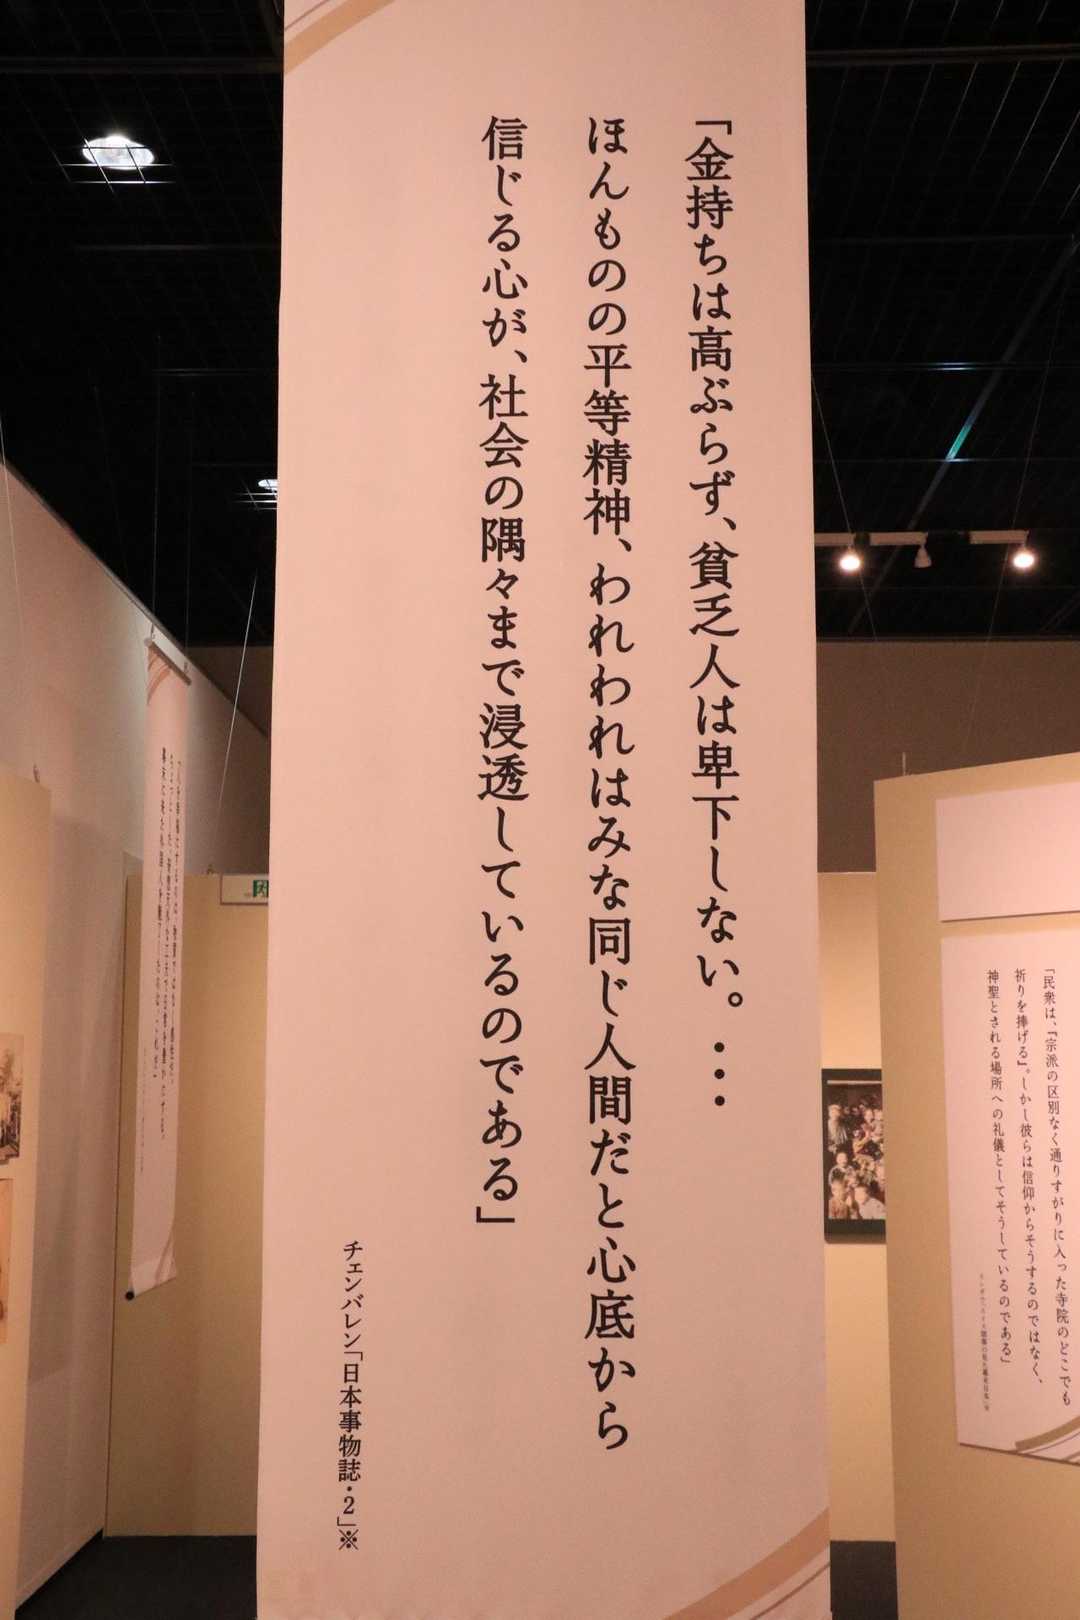 「金持ちは高ぶらず、貧乏人は卑下しない。・・・
ほんものの平等精神、われわれはみな同じ人間だと心底から
信じる心が、社会の隅々まで浸透しているのである」
チェンバレン「日本事物誌・2」※
「民衆は、『宗派の区別なく通りすがりに入った寺院のどこでも
祈りを捧げる』。しかし彼らは信仰からそうするのではなく、
神聖とされる場所への礼儀としてそうしているのである」